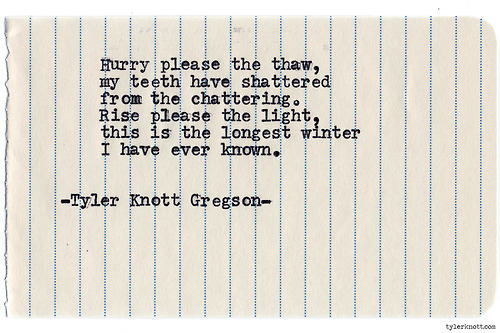 Hurry please the thaw,
my teeth have shattered
from the chattering.
Rise please the light,
this is the longest winter
I have ever known.
-Tyler Knott Gregson-
tylerknott.com